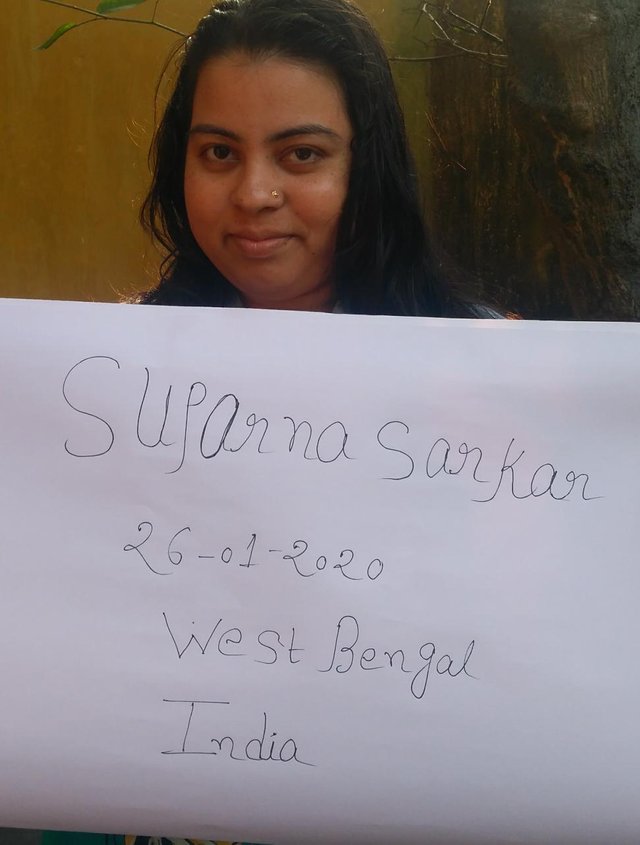 Suparna Sarkar
26-01-2020
West Bengal
India